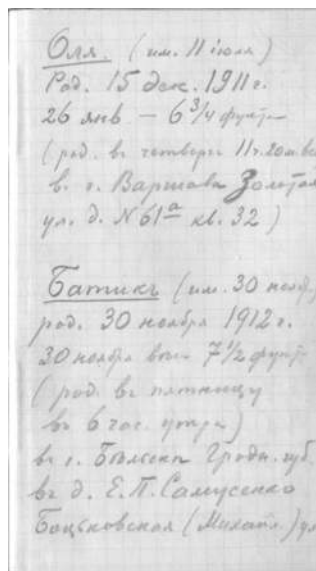 Оля. (им. 11 іюля)
Род. 15 дек. 1911 г.
26 янв — 6 3/4 фунта
(род. въ четвергъ 11 ч. 20 м. ве
в. г. Варшава Золотая
ул. д. N 61а кв. 32)
Батикъ (им. 30 ноябр
род. 30 ноября 1912 г.
30 ноября 7 1/2 фунт
(род. въ пятницу
въ 6 час. утра)
въ г. Бѣльскѣ Гродн. губ.
въ д. Е. П. Самусенко
Боцьковская (Михайл.) ул